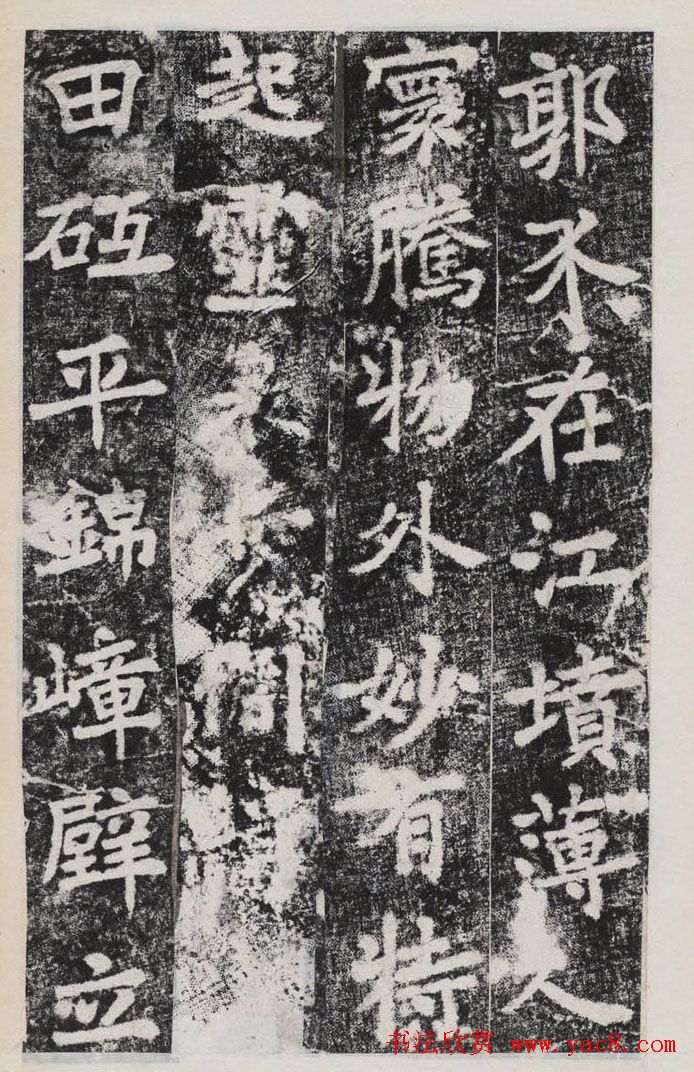 郭禾在江墳薄人
寰騰物外妙有特
起靈間
田砥平錦嶂壁立
书法欣赏 www.yac8.com